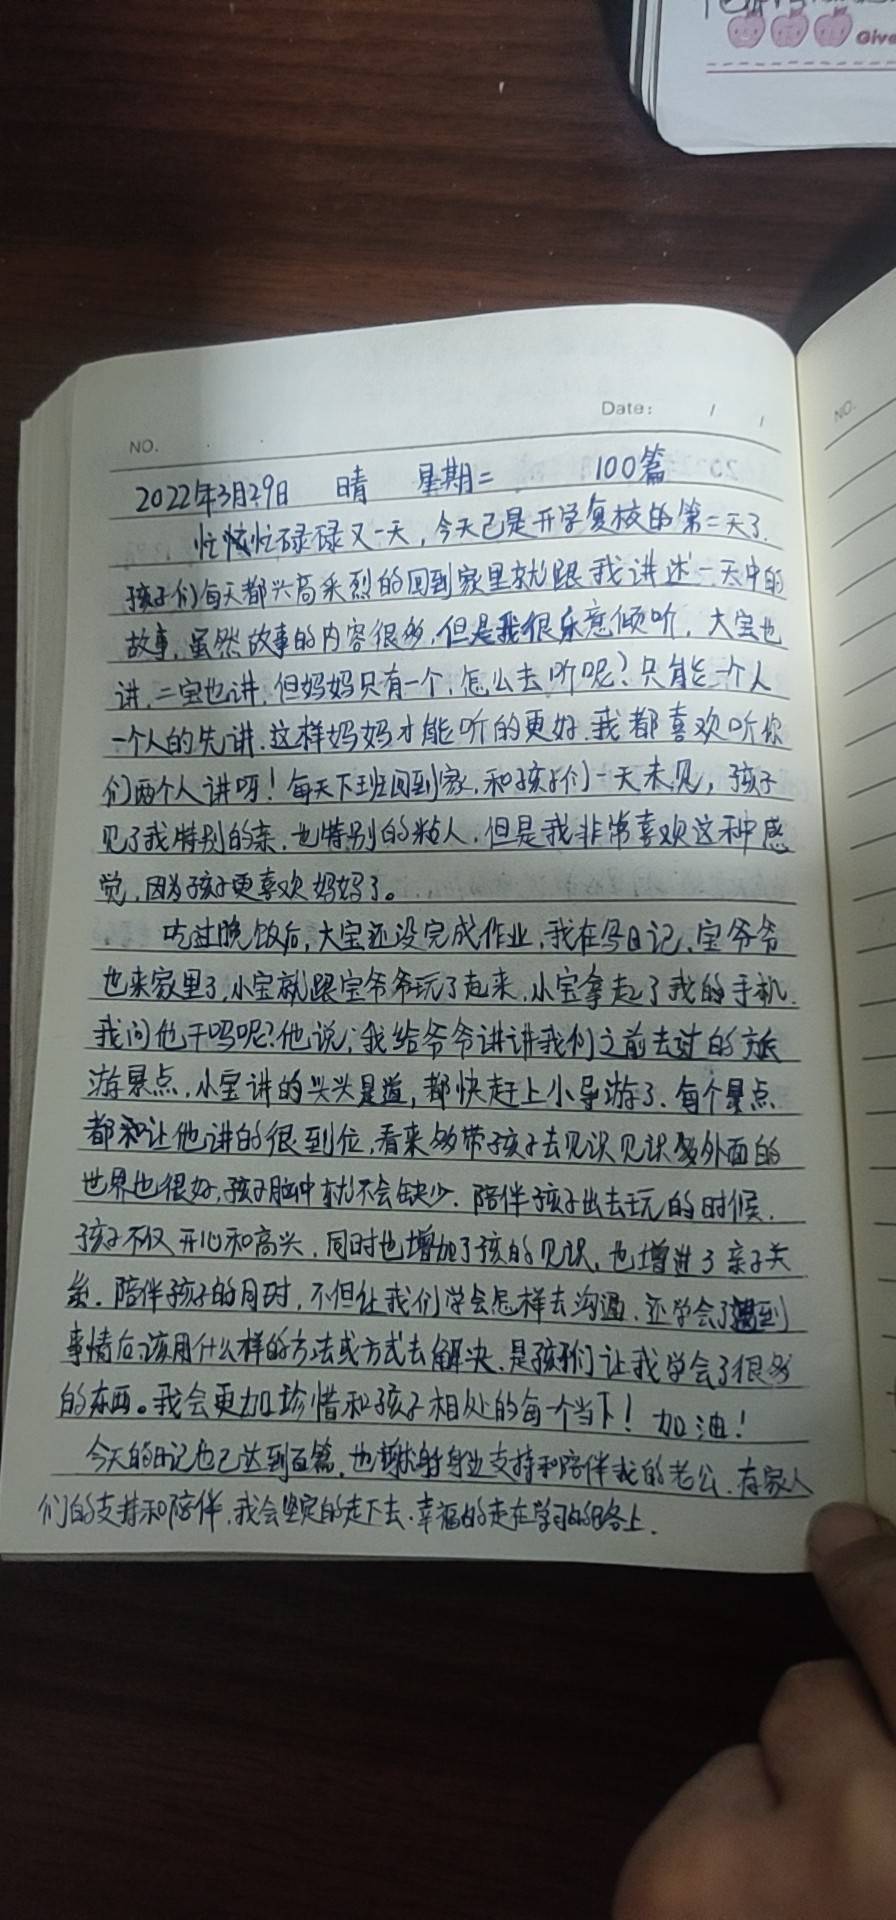 Give
NO.
Date: / /
NO.
2022年3月29日 晴 星期二 100篇
忙忙碌碌又一天，今天已是开学复校的第二天了.
孩子们每天都兴高采烈的回到家里就跟我讲述一天中的
故事.虽然故事的内容很多,但是我很乐意倾听. 大宝也
讲.二宝也讲.但妈妈只有一个.怎么去听呢?只能一个人
一个人的先讲.这样妈妈才能听的更好.我都喜欢听你
们两个人讲呀！每天下班回到家.和孩子们一天未见，孩子
见了我特别的亲.也特别的粘人.但是我非常喜欢这种感
觉.因为孩子更喜欢妈妈了。
吃过晚饭后,大宝还没完成作业,我在写日记.宝爷爷
也来家里了,小宝就跟宝爷爷玩了起来,小宝拿起了我的手机.
我问他干吗呢?他说:我给爷爷讲讲我们之前去过的旅
游景点.小宝讲的头头是道,都快赶上小导游了.每个景点
都让他讲的很到位,看来多带孩子去见识见识外面的
世界也很好,孩子脑中就不会缺少.陪伴孩子出去玩的时候.
孩子不仅开心和高兴.同时也增加了孩的见识.也增进了亲子关
系.陪伴孩子的同时,不但让我们学会怎样去沟通.还学会了遇到
事情后该用什么样的方法或方式去解决.是孩子们让我学会了很多
的东西。我会更加珍惜和孩子相处的每一个当下！加油！
今天的日记也已达到百篇.也身边支持和陪伴我的老公.有家人
们的支持和陪伴.我会坚定的走下去.幸福的走在学习的路上.